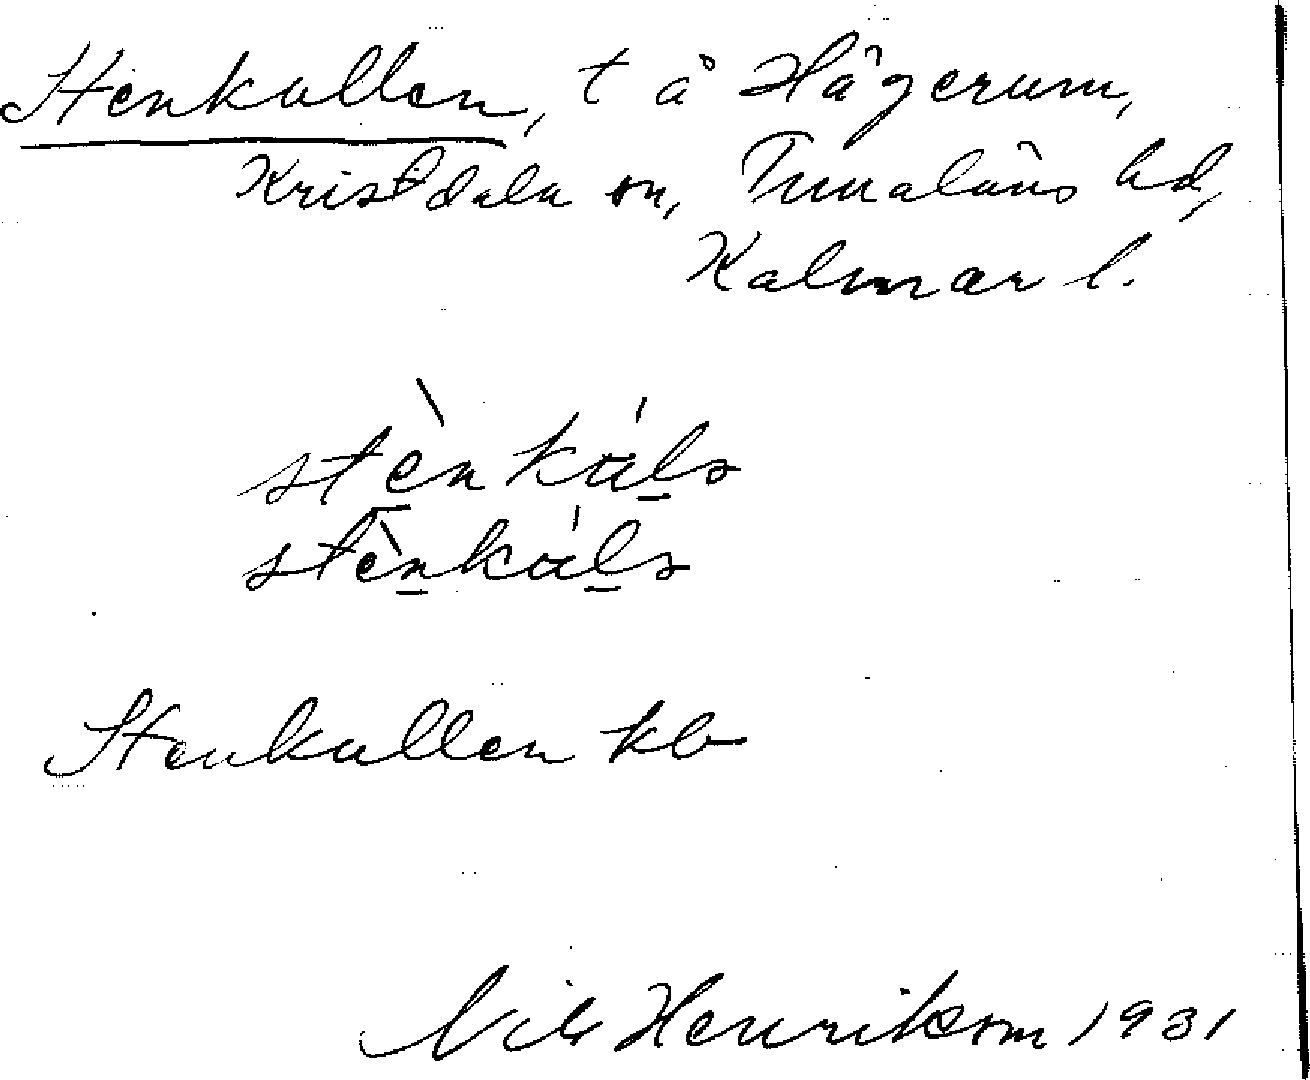 Stenkullen, t å Hägerum,
Kristdala sn, Tunaläns hd,
Kalmar l.
stènkúls
stènkúls
Stenkullen kb
Nils Henrikson 1931